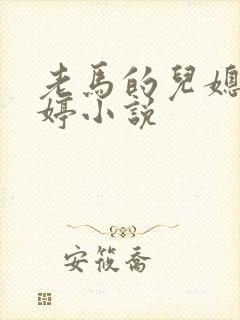 老馬的兒媳
婷小說
安筱喬